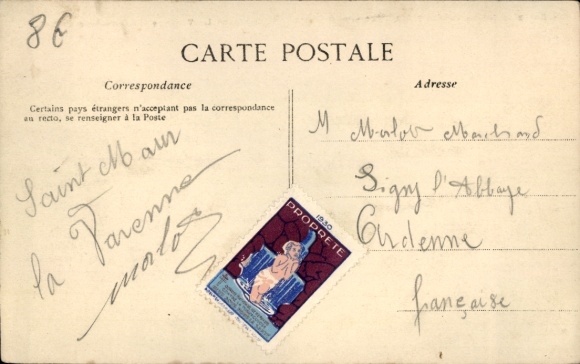 8€
CARTE POSTALE
Correspondance
Adresse
Certains pays étrangers n'acceptant pas la correspondance
au recto, se renseigner à la Poste
Saint Maur
la Varenne
Morlot
M Morlot Marchand
Signy l'Abbaye
Ardenne
française
1930
PROPRETÉ